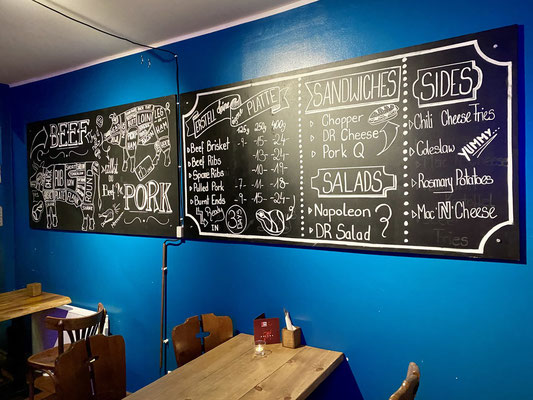 BEEF
PORK
LOIN
LEG
HAM
ROUND
RIB
ERSTELL deine PLATTE
125g 250g 400g
Beef Brisket -9- -15- -24-
Beef Ribs -9- -15- -24-
Spare Ribs -7- -13- -18-
Pulled Pork -7- -11- -18-
Burnt Ends -9- -15- -24-
IN
SANDWICHES
Chopper
DR Cheese
Pork Q
SALADS
Napoleon ?
DR Salad
SIDES
Chili Cheese Fries
Coleslaw YUMMY
Rosmary Potatoes
Mac 'N' Cheese
Fries